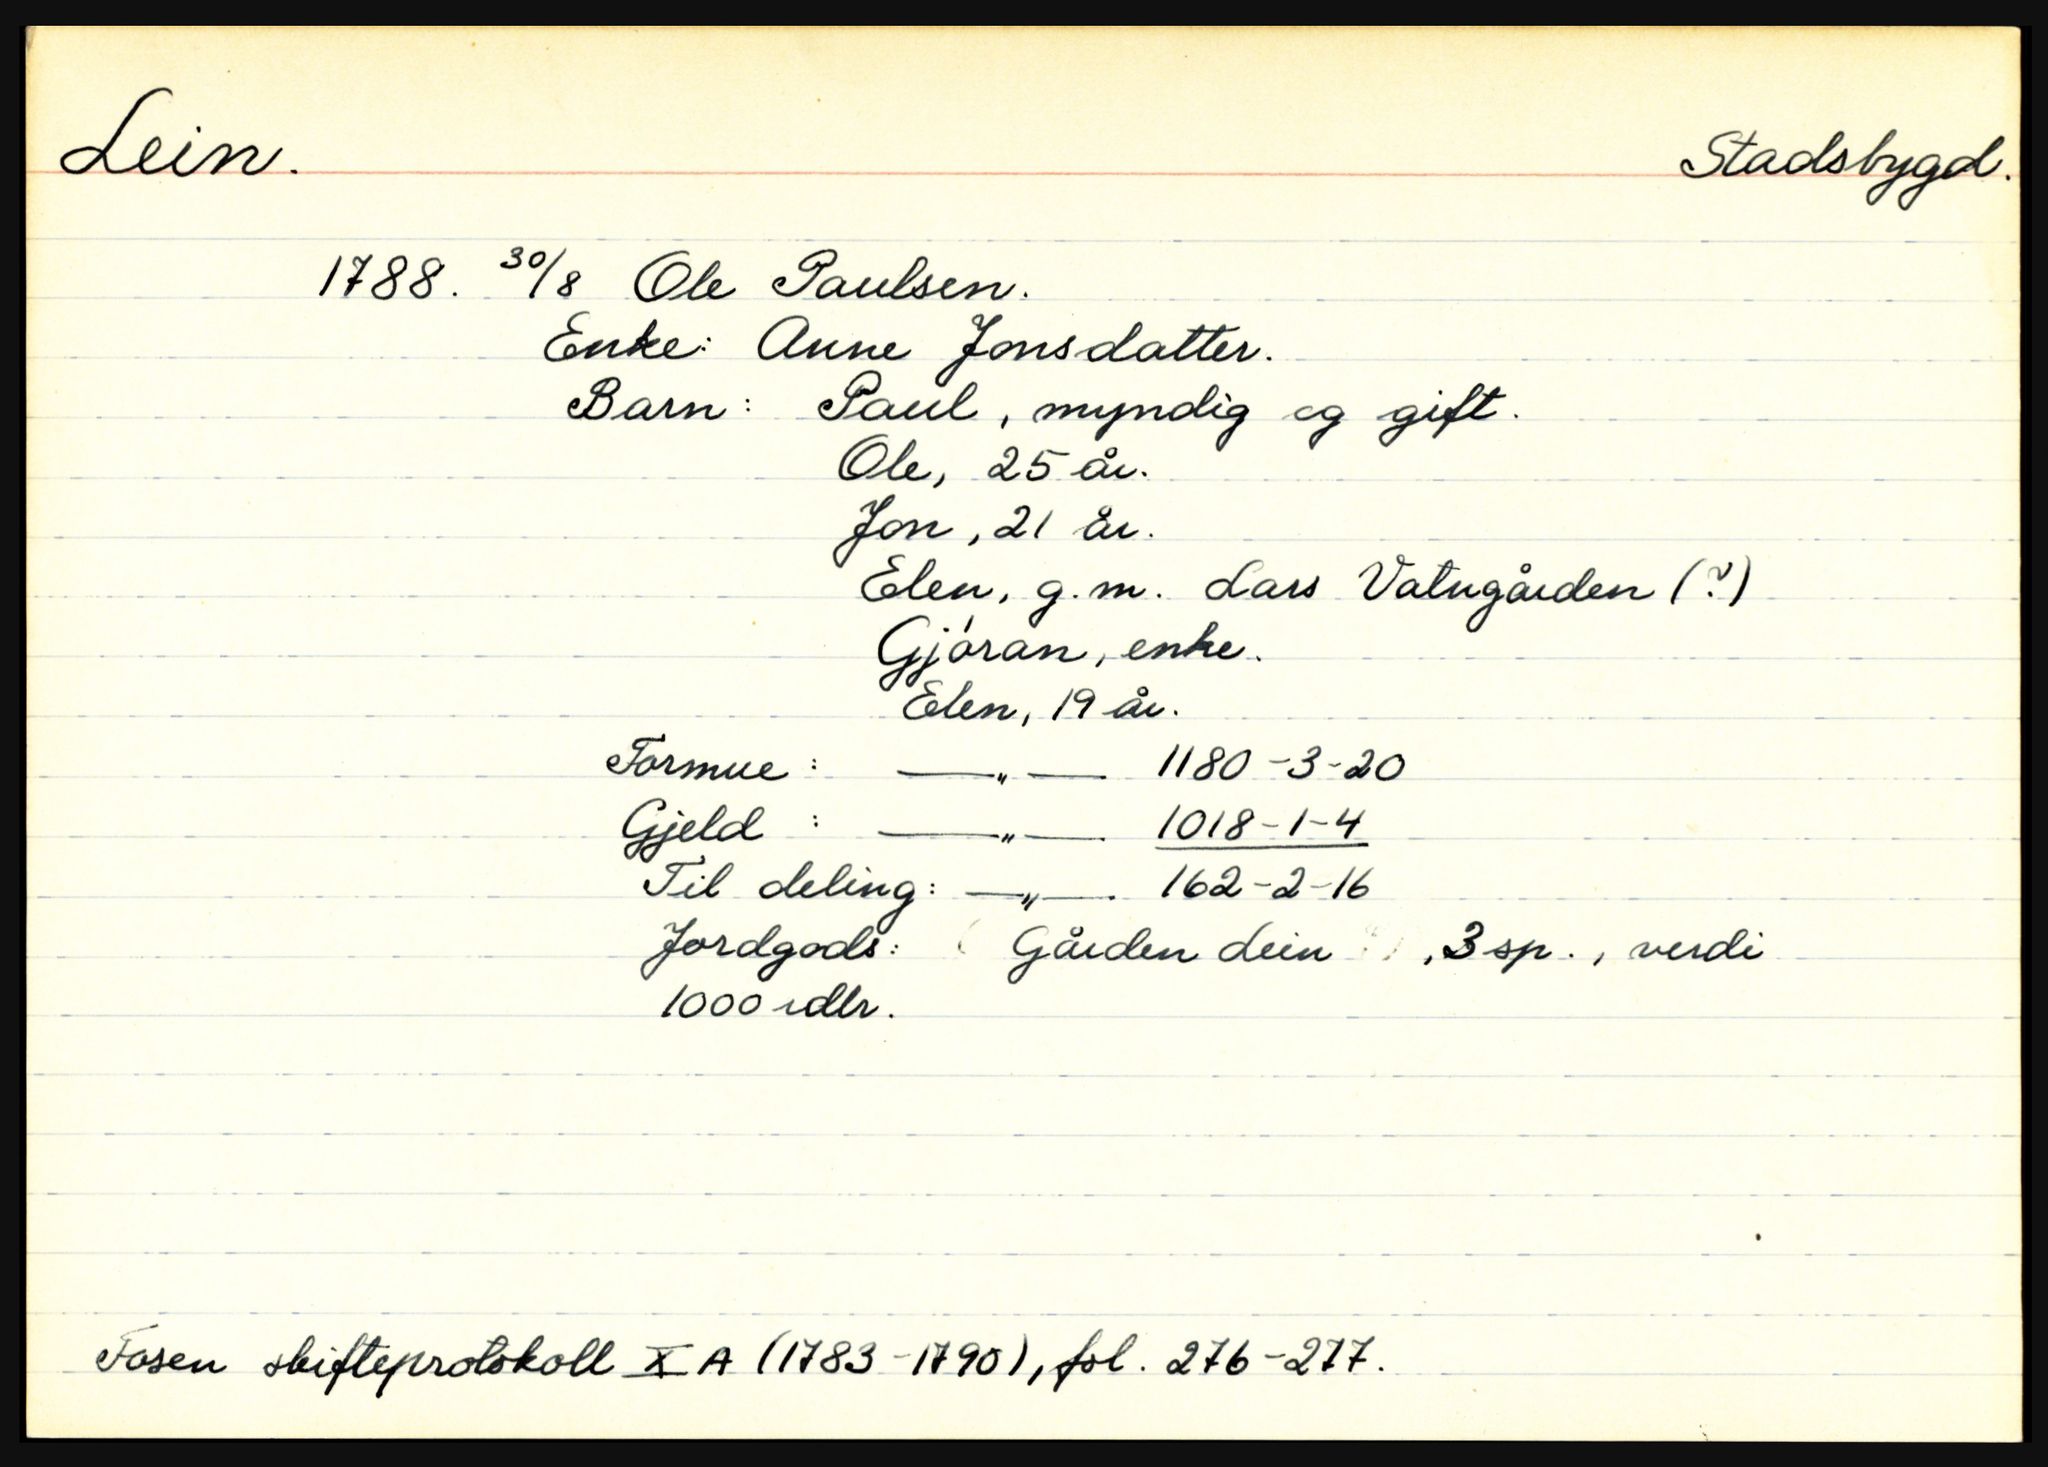 Lein.
Stadsbygd.
1788. 30/8 Ole Paulsen.
Enke: Anne Jonsdatter.
Barn: Paul, myndig og gift.
Ole, 25 år.
Jon, 21 år.
Elen, g.m. Lars Vatngården (?)
Gjøran, enke.
Elen, 19 år.
Formue: —„— 1180-3-20
Gjeld : —„— 1018-1-4
Til deling: —„— 162-2-16
Jordgods: Gården Lein, 3 sp., verdi
1000 rdlr.
Fosen skifteprotokoll X A (1783-1790), fol. 276-277.